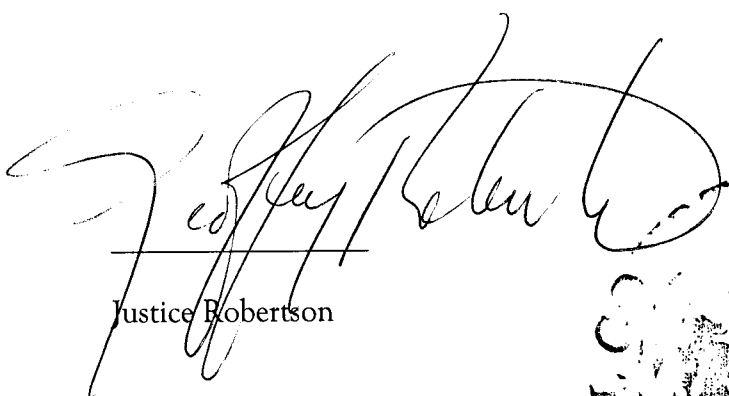 Geoffrey Robertson
Justice Robertson